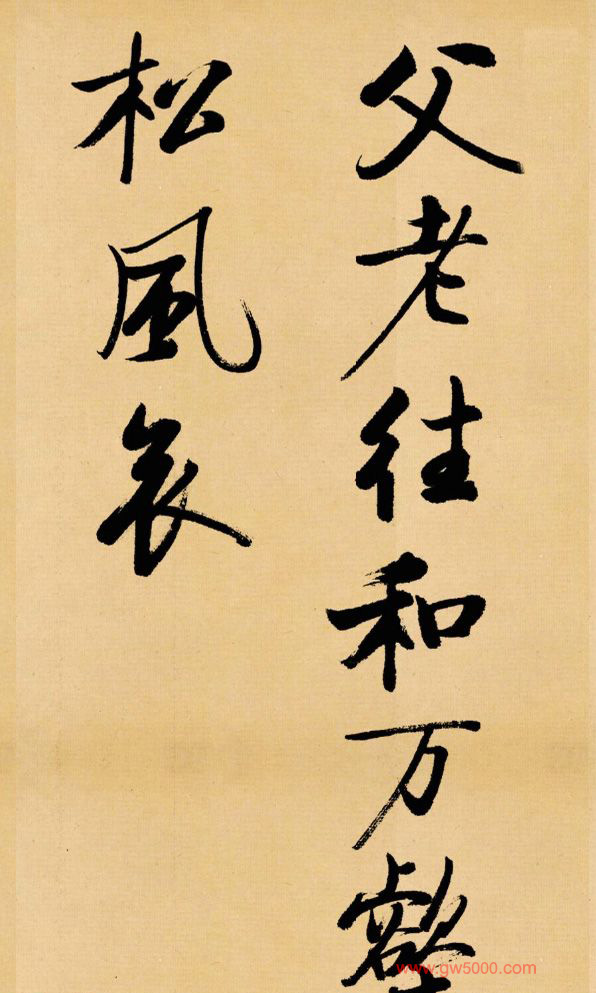 父老往和万壑
松風哀
www.gw5000.com